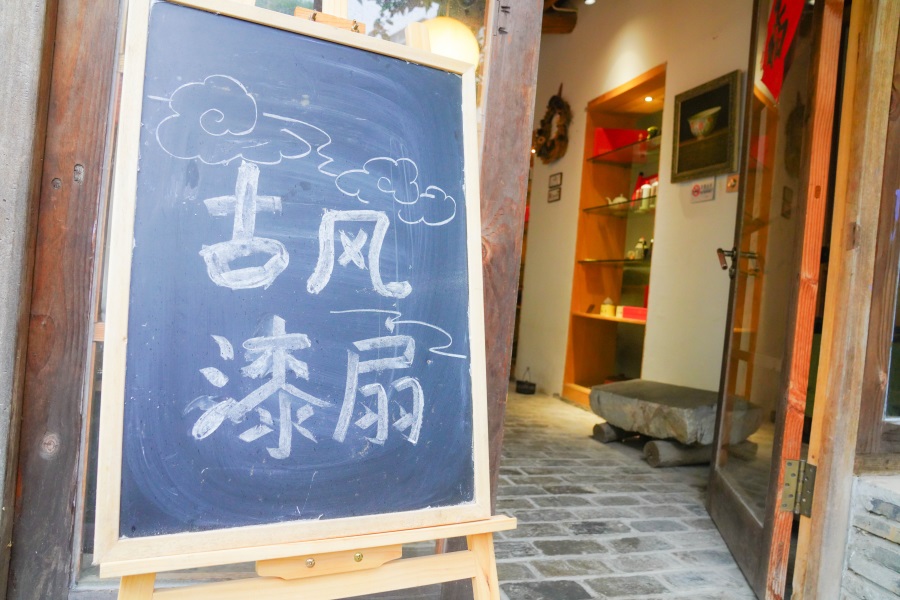 古风
漆扇